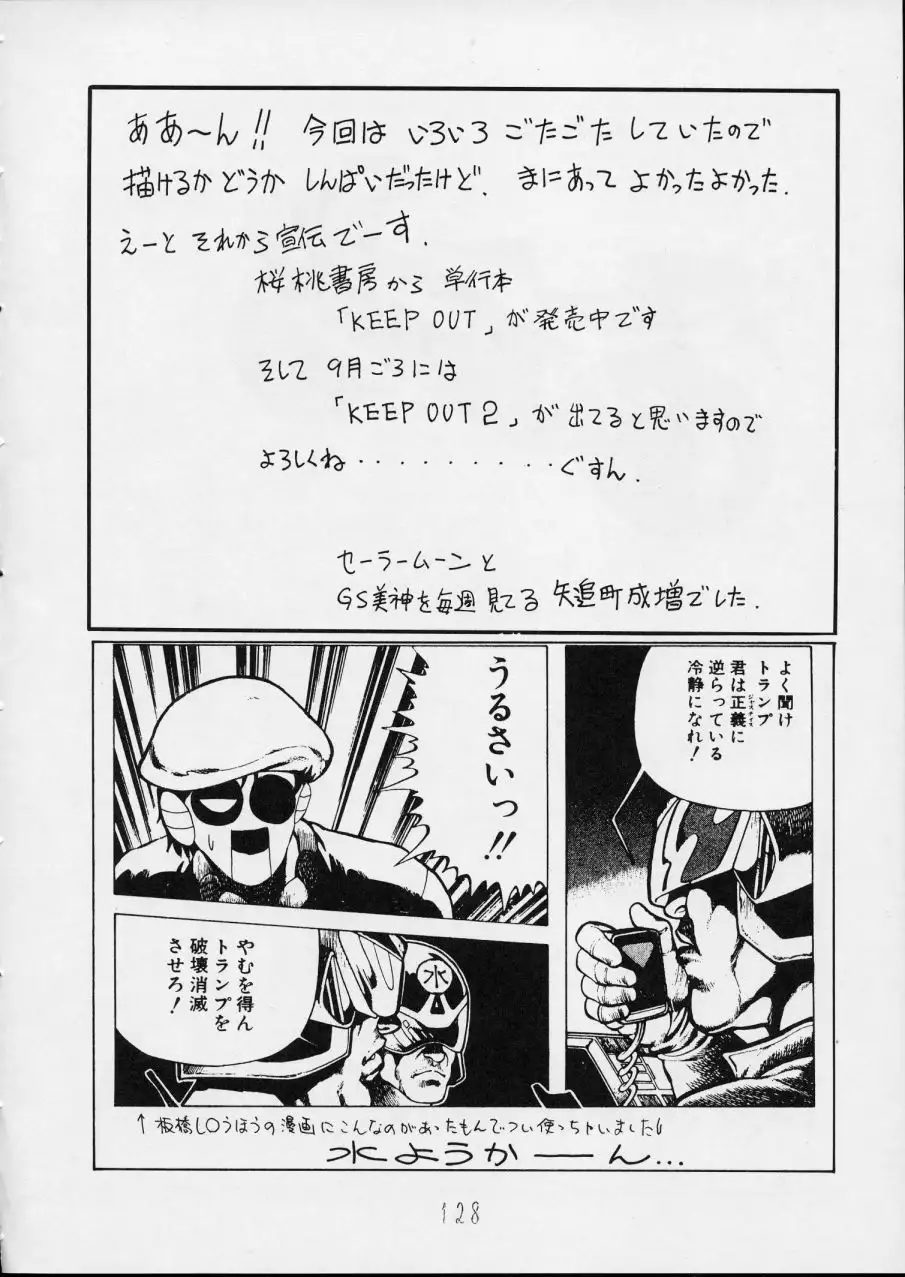 ああ〜ん!! 今回は いろいろ ごたごた していたので
描けるかどうか しんぱいだったけど. まにあって よかったよかった.
えーと それから宣伝でーす.
桜桃書房から 単行本
「KEEP OUT」が発売中です
そして 9月ごろには
「KEEP OUT 2」が出てると思いますので
よろしくね・・・・・・・・・ぐすん.
セーラームーンと
GS美神を毎週見てる 矢追町成増でした.
よく聞け
トランプ
君は正義に
ジャスティス
逆らっている
冷静になれ!
うるさいっ!!
やむを得ん
トランプを
破壊消滅
させろ!
水
↑板橋し〇うほうの漫画にこんなのがあったもんでつい使っちゃいました
水ようかーん...
128